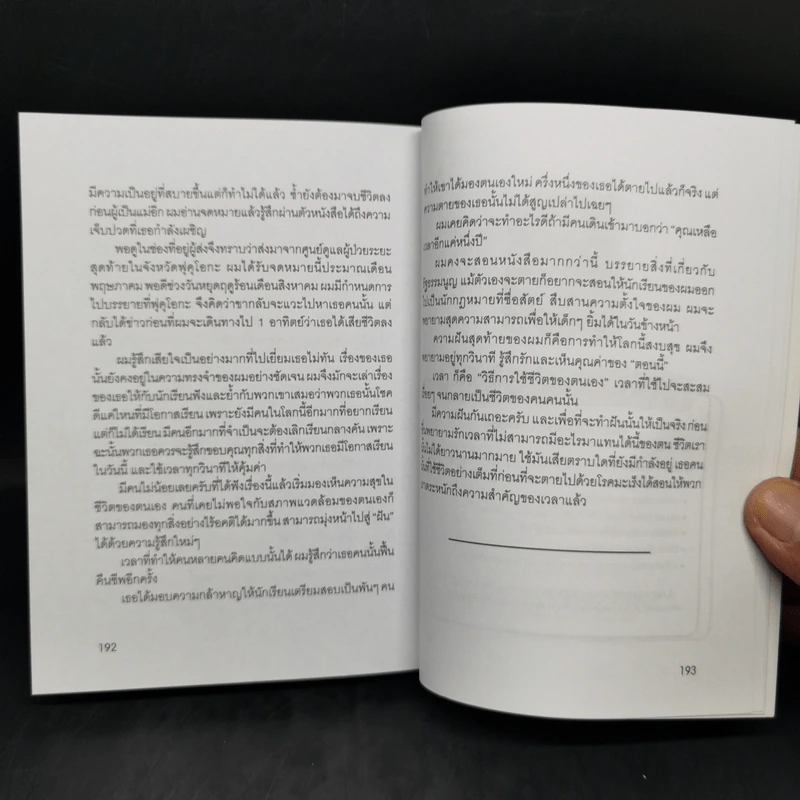 มีความเป็นอยู่ที่สบายขึ้นแต่ก็ทำไม่ได้แล้ว ซ้ำยังต้องมาจบชีวิตลง
ก่อนผู้เป็นแม่อีก ผมอ่านจดหมายแล้วรู้สึกผ่านตัวหนังสือได้ถึงความ
เจ็บปวดที่เธอกำลังเผชิญ
พอดูในช่องที่อยู่ผู้ส่งจึงทราบว่าส่งมาจากศูนย์ดูแลผู้ป่วยระยะ
สุดท้ายในจังหวัดฟุคุโอกะ ผมได้รับจดหมายนี้ประมาณเดือน
พฤษภาคม พอดีช่วงวันหยุดฤดูร้อนเดือนสิงหาคม ผมมีกำหนดการ
ไปบรรยายที่ฟุคุโอกะ จึงคิดว่าขากลับจะแวะไปหาเธอคนนั้น แต่
กลับได้ข่าวก่อนที่ผมจะเดินทางไป 1 อาทิตย์ว่าเธอได้เสียชีวิตลง
แล้ว
ผมรู้สึกเสียใจเป็นอย่างมากที่ไปเยี่ยมเธอไม่ทัน เรื่องของเธอ
นั้นยังคงอยู่ในความทรงจำของผมอย่างชัดเจน ผมจึงมักจะเล่าเรื่อง
ของเธอให้กับนักเรียนฟังและย้ำกับพวกเขาเสมอว่าพวกเธอนั้นโชค
ดีแค่ไหนที่มีโอกาสเรียน เพราะยังมีคนในโลกนี้อีกมากที่อยากเรียน
แต่ก็ไม่ได้เรียน มีคนอีกมากที่จำเป็นจะต้องเลิกเรียนกลางคัน เพราะ
ฉะนั้นพวกเธอควรจะรู้สึกขอบคุณทุกสิ่งที่ทำให้พวกเธอมีโอกาสเรียน
ในวันนี้ และใช้เวลาทุกวินาทีให้คุ้มค่า
มีคนไม่น้อยเลยครับที่ได้ฟังเรื่องนี้แล้วเริ่มมองเห็นความสุขใน
ชีวิตของตนเอง คนที่เคยไม่พอใจกับสภาพแวดล้อมของตนเองก็
สามารถมองทุกสิ่งอย่างไร้อคติได้มากขึ้น สามารถมุ่งหน้าไปสู่ "ฝัน"
ได้ด้วยความรู้สึกใหม่ๆ
เวลาที่ทำให้คนหลายคนคิดแบบนั้นได้ ผมรู้สึกว่าเธอคนนั้นฟื้น
คืนชีพอีกครั้ง
เธอได้มอบความกล้าหาญให้นักเรียนเตรียมสอบเป็นพันๆ คน
192
ทำให้เขาได้มองตนเองใหม่ ครึ่งหนึ่งของเธอได้ตายไปแล้วก็จริง แต่
ความตายของเธอนั้นไม่ได้สูญเปล่าไปเฉยๆ
ผมเคยคิดว่าจะทำอะไรดีถ้ามีคนเดินเข้ามาบอกว่า "คุณเหลือ
เวลาอีกแค่หนึ่งปี"
ผมคงจะสอนหนังสือมากกว่านี้ บรรยายสิ่งที่เกี่ยวกับ
รัฐธรรมนูญ แม้ตัวเองจะตายก็อยากจะสอนให้นักเรียนของผมออก
ไปเป็นนักกฎหมายที่ซื่อสัตย์ สืบสานความตั้งใจของผม ผมจะ
พยายามสุดความสามารถเพื่อให้เด็กๆ ยิ้มได้ในวันข้างหน้า
ความฝันสุดท้ายของผมก็คือการทำให้โลกนี้สงบสุข ผมจึง
พยายามอยู่ทุกวินาที รู้สึกรักและเห็นคุณค่าของ "ตอนนี้"
เวลา ก็คือ "วิธีการใช้ชีวิตของตนเอง" เวลาที่ใช้ไปจะสะสม
เรื่อยๆ จนกลายเป็นชีวิตของคนคนนั้น
มีความฝันกันเถอะครับ และเพื่อที่จะทำฝันนั้นให้เป็นจริง ก่อน
พยายามรักเวลาที่ไม่สามารถมีอะไรมาแทนได้นี้ของตน ชีวิตเรา
ไม่ได้ยาวนานมากมาย ใช้มันเสียตราบใดที่ยังมีกำลังอยู่ เธอคน
ใช้ชีวิตอย่างเต็มที่ก่อนที่จะตายไปด้วยโรคมะเร็งได้สอนให้พวก
ตระหนักถึงความสำคัญของเวลาแล้ว
193